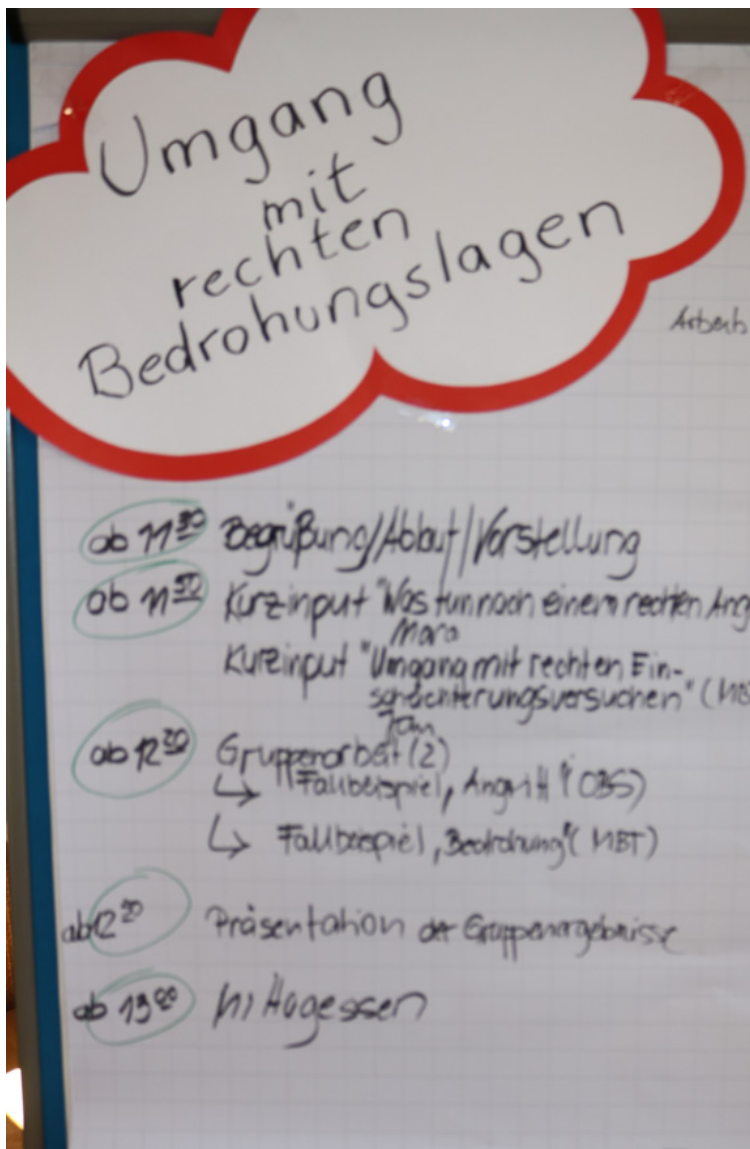 Umgang
mit
rechten
Bedrohungslagen
Arbeits
ab 11³⁰ Begrüßung/Ablauf/Vorstellung
ab 11⁵⁰ Kurzinput "Was tun nach einem rechten Ang
Mara
Kurzinput "Umgang mit rechten Ein-
schüchterungsversuchen" (MB
Jan
ab 12²⁰ Gruppenarbeit (2)
↳ Fallbeispiel „Angriff" (OBS)
↳ Fallbeispiel „Bedrohung" (MBT)
ab 12 Präsentation der Gruppenergebnisse
ab 13⁰⁰ Mittagessen